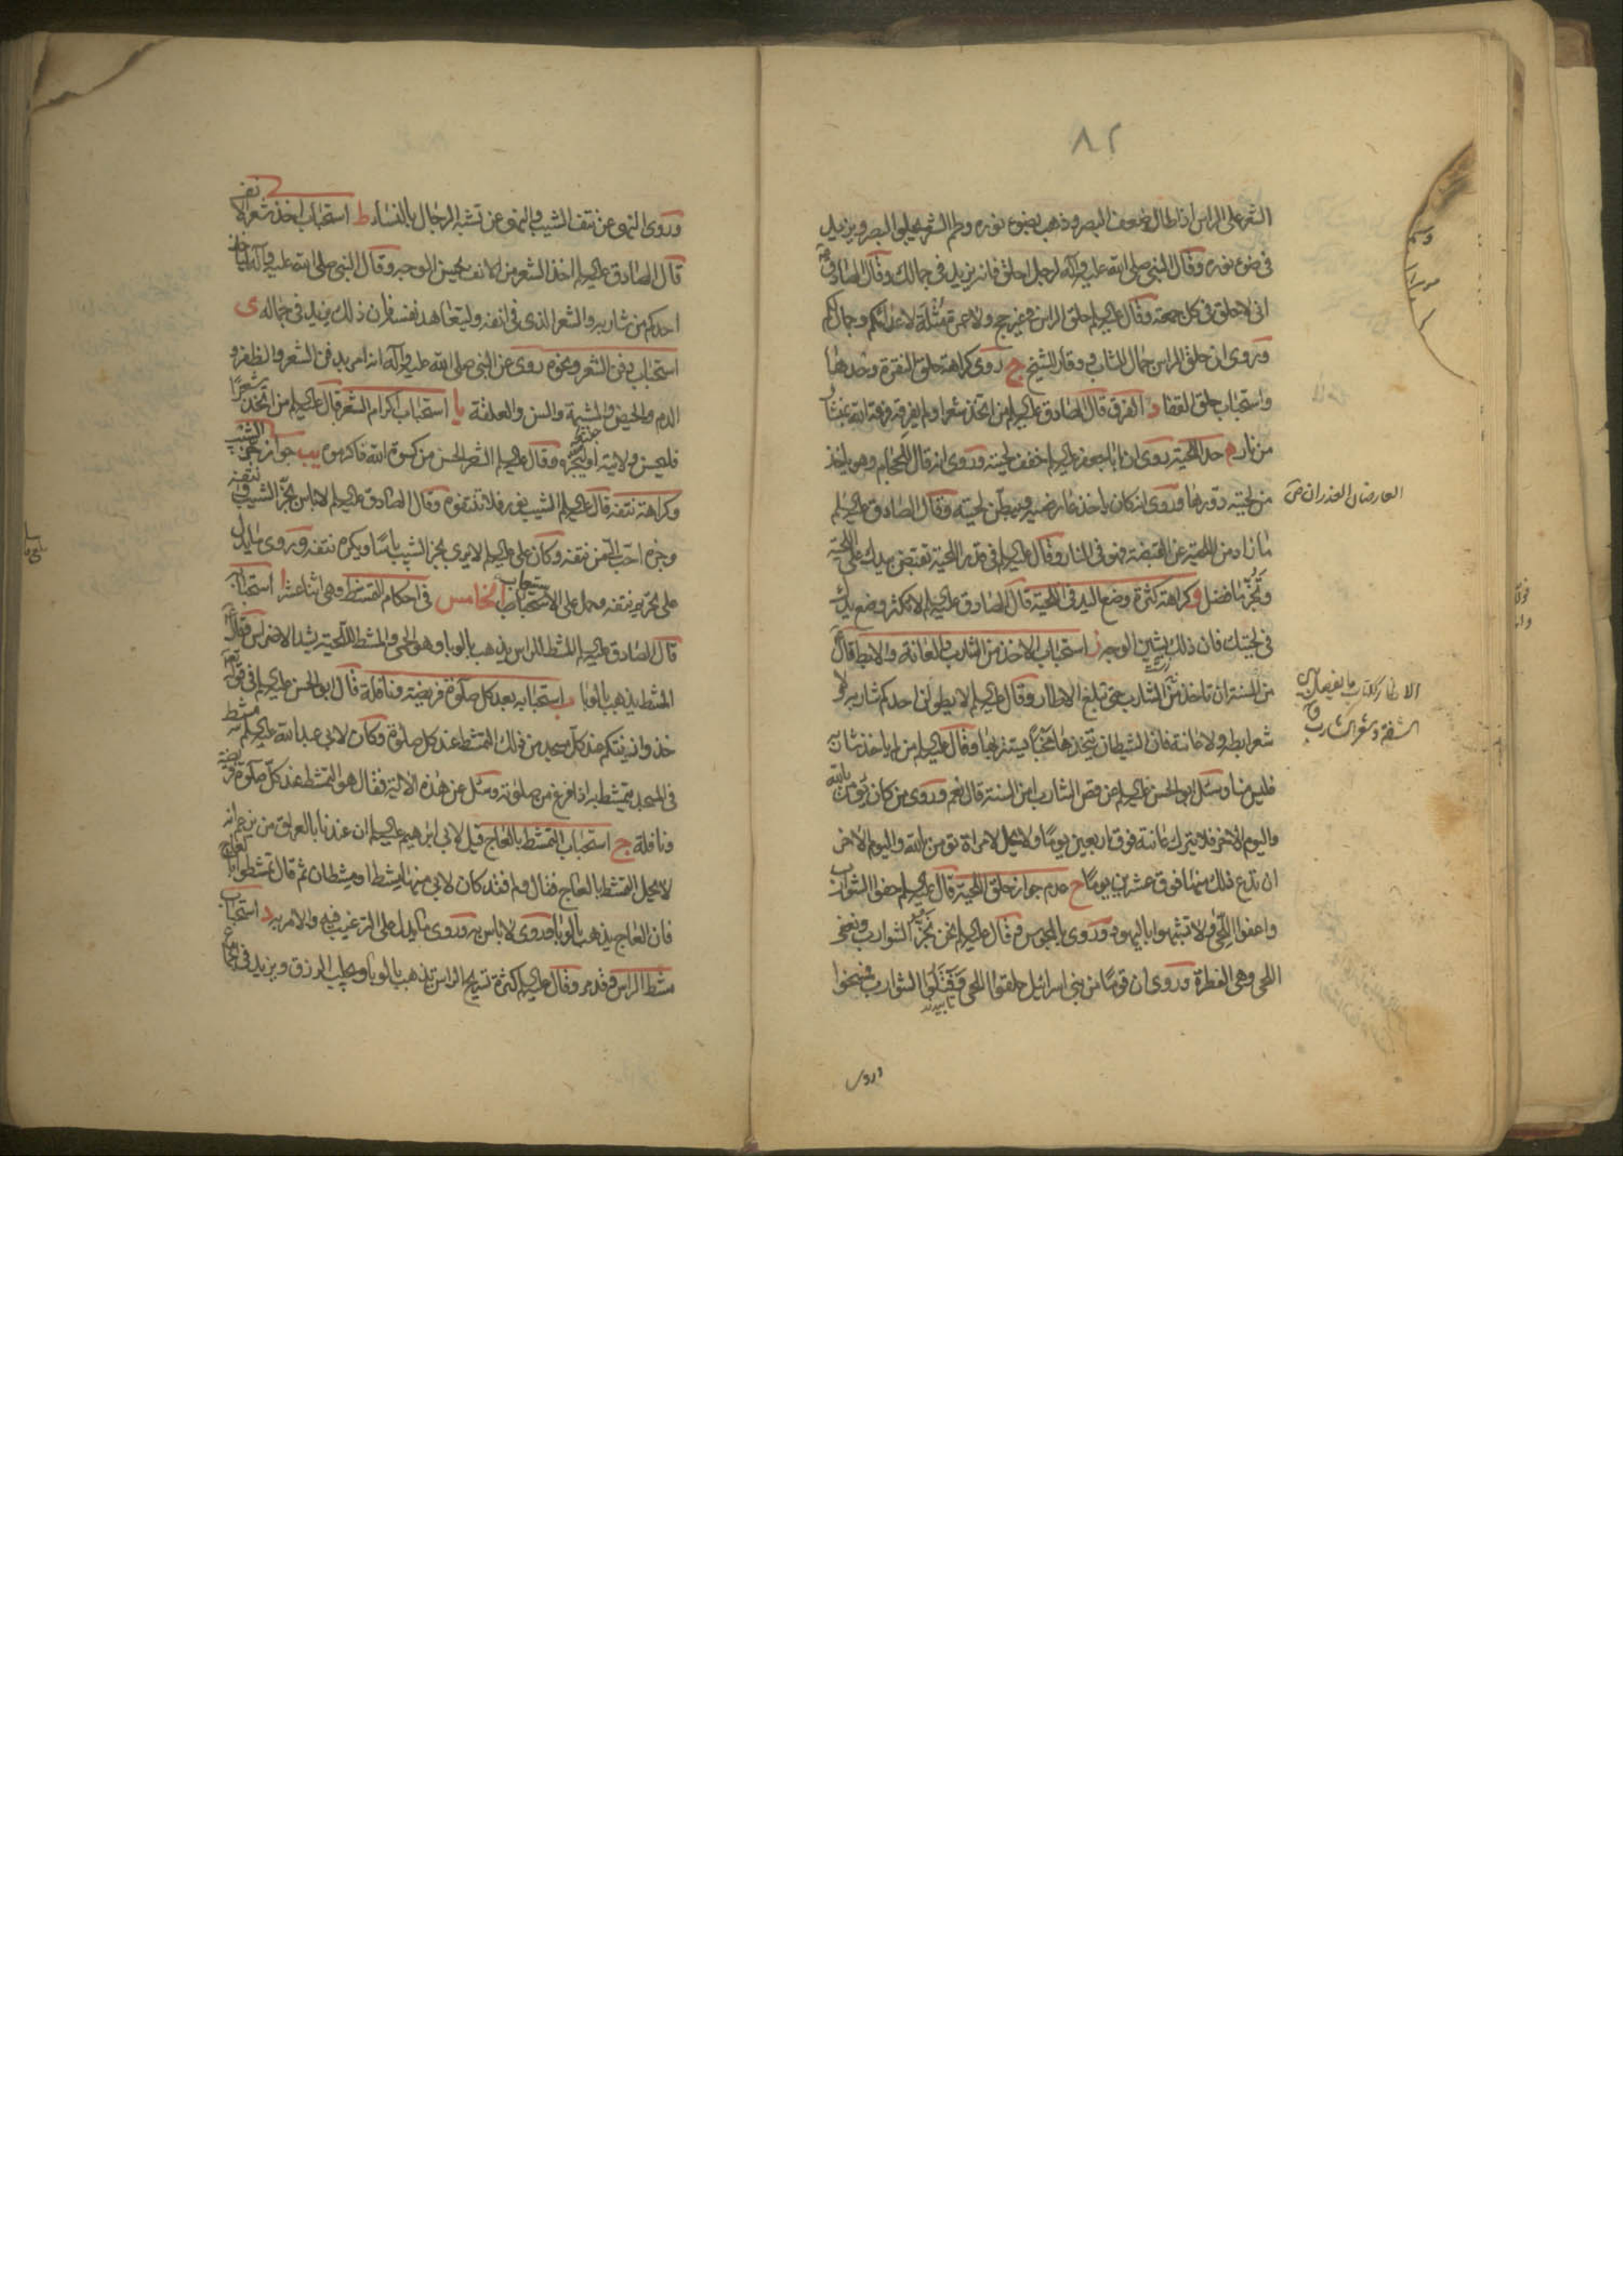 ٨٢
الشعر على الراس اذا طال ضعف البصر وذهب بضوء نوره وطم الشعر يجلو البصر ويزيد
في ضوء نوره وقال النبي صلى الله عليه وآله لرجل احلق فانه يزيد في جمالك وقال الصادق
انى لاحلق في كل جمعة وقال عليه السلام حلق الراس في غير حج ولا عمرة مثلة لاعدائكم وجمال لكم
وروى ان حلق الراس جمال الشاب ووقار الشيخ ج روى كراهة حلق النقرة وحدها
واستحباب حلق القفا د الفرق قال الصادق عليه السلام من اتخذ شعرا ولم يفرقه فرقه الله بمنشار
من نار ه حد اللحية روى ان ابا جعفر عليه السلام خفف لحيته وروى انه قال للحجام وهو ياخذ
من لحيته دورها وروى انه كان ياخذ عارضيه ويبطن لحيته وقال الصادق عليه السلام
ما زاد من اللحية عن القبضة فهو في النار وقال عليه السلام في قدر اللحية تقبض بيدك على اللحية
وتجز ما فضل و كراهة كثرة وضع اليد في اللحية قال الصادق عليه السلام لا تكثر وضع يدك
في لحيتك فان ذلك يشين الوجه ز استحباب الاخذ من الشارب والعانة والابط قال
من السنة ان تاخذ من الشارب حتى تبلغ الاطار وقال عليه السلام لا يطولن احدكم شاربه ولا
شعر ابطه ولا عانته فان الشيطان يتخذها مخبأ يستتر بها وقال عليه السلام من لم ياخذ شاربه
فليس منا وسئل ابو الحسن عليه السلام عن قص الشارب امن السنة قال نعم وروى من كان يؤمن بالله
واليوم الاخر فلا يترك عانته فوق اربعين يوما ولا يحل لامراة تؤمن بالله واليوم الاخر
ان تدع ذلك منها فوق عشرين يوما ح عدم جواز حلق اللحية قال عليه السلام حفوا الشوارب
واعفوا اللحى ولا تشبهوا باليهود وروى بالمجوس وقال عليه السلام نحن نجز الشوارب ونعفى
اللحى وهي الفطرة وروى ان قوما من بني اسرائيل حلقوا اللحى وفتلوا الشوارب فمسخوا
تابيدند
وروى
العارضان العذران ص
الاطار ككتاب ما يفصل بين
الشفة وشعر الشارب ق
وروى النهى عن نتف الشيب والنهى عن تشبه الرجال بالنساء ط استحباب اخذ شعر الانف
قال الصادق عليه السلام اخذ الشعر من الانف يحسن الوجه وقال النبي صلى الله عليه وآله لياخذ
احدكم من شاربه والشعر الذى في انفه وليتعاهد نفسه فان ذلك يزيد في جماله ى
استحباب دفن الشعر ونحوه روى عن النبي صلى الله عليه وآله انه امر بدفن الشعر والظفر و
الدم والحيض والمشيمة والسن والعلقة يا استحباب اكرام الشعر قال عليه السلام من اتخذ شعرا
فليحسن ولايته او ليجزه وقال عليه السلام الشعر الحسن من كسوة الله فاكرموه يب جواز جز الشيب
وكراهة نتفه قال عليه السلام الشيب نور فلا تنتفوه وقال الصادق عليه السلام لا باس بجز الشيب ونتفه
وجزه احب الى من نتفه وكان على عليه السلام لا يرى بجز الشيب باسا ويكره نتفه وروى ما يدل
على تحريم نتفه وحمل على الاستحباب الخامس في احكام التمشط وهي اثنا عشر ا استحبابه
قال الصادق عليه السلام المشط للراس يذهب بالوبا وهو الحمى والمشط للحية يشد الاضراس وقال
المشط يذهب بالوبا ب استحبابه بعد كل صلوة فريضة ونافلة قال ابو الحسن عليه السلام في قوله تعالى
خذوا زينتكم عند كل مسجد من ذلك التمشط عند كل صلوة وكان لابى عبد الله عليه السلام مشط
في المسجد يتمشط به اذا فرغ من صلوته وسئل عن هذه الاية فقال هو التمشط عند كل صلوة فريضة
ونافلة ج استحباب التمشط بالعاج قيل لابى ابرهيم عليه السلام ان عندنا بالعراق من يزعم انه
لا يحل التمشط بالعاج فقال ولم فقد كان لابى منها مشط او مشطان ثم قال تمشطوا بالعاج
فان العاج يذهب بالوبا وروى لا باس به وروى ما يدل على الترغيب فيه والامر به د استحباب
مشط الراس وقدره وقال عليه السلام كثرة تسريح الراس يذهب بالوبا ويجلب الرزق ويزيد في الجماع